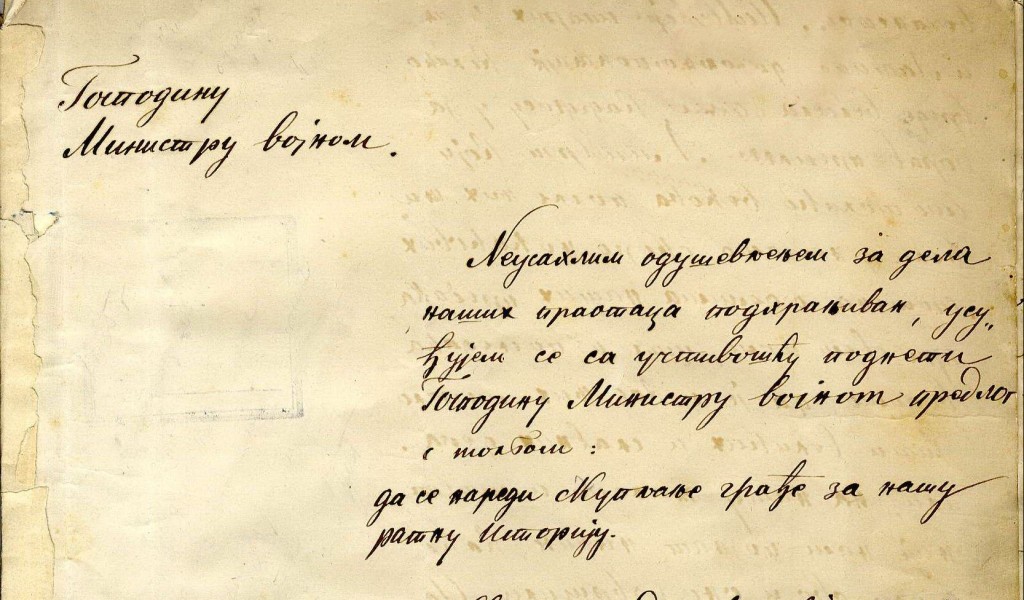 Господину
Министру војном.
Неусахлим одушевљењем за дела
наших праотаца подхрањиван, усу„
ђујем се са учтивошћу поднети
Господину Министру војном предлог
с молбом:
да се нареди скупљање грађе за нашу
ратну историју.